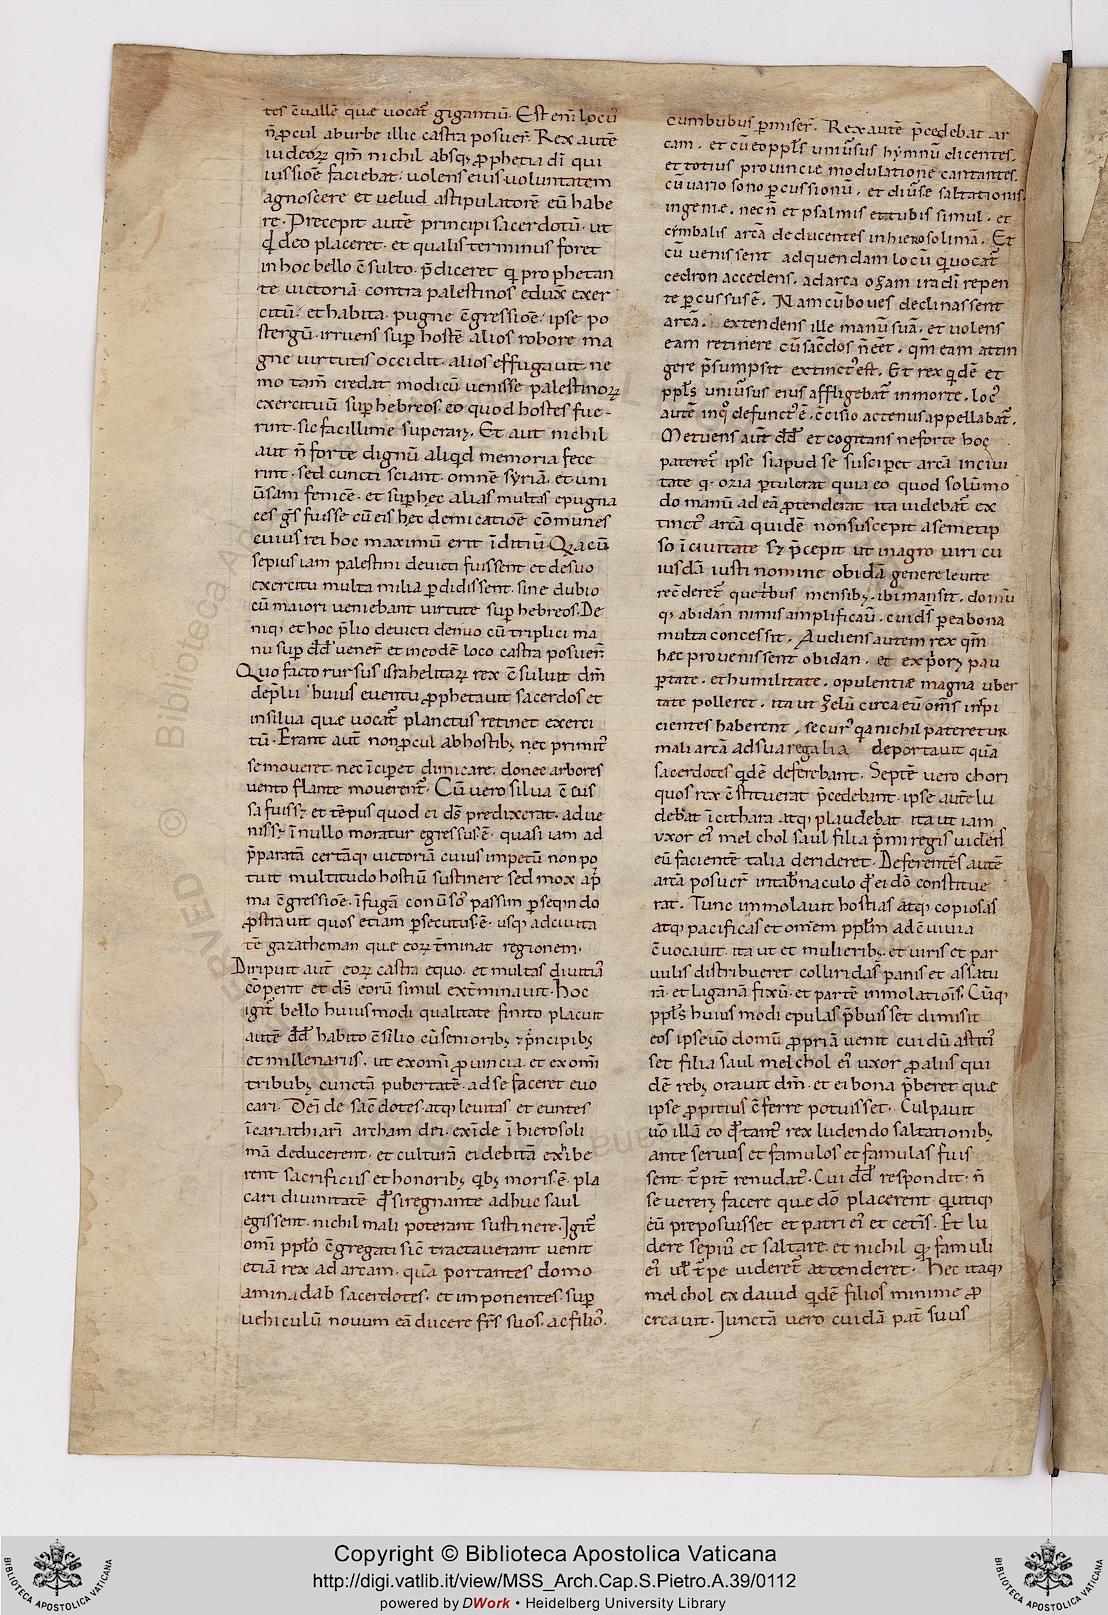 tes c̄uallē quę uocat̄ gigantiū. Est enī locū
n̄ ꝓcul aburbe illic castra posuer̄. Rex autē
iudeoꝝ qm̄ nichil absq; ꝓphetia dī qui
iussiōe faciebat. uolens eius uoluntatem
agnoscere et uelud astipulatorē eū habe
re. Precepit autē principi sacerdotū. ut
qd̄ deo placeret. et qualis terminus foret
inhoc bello c̄sulto. p̄diceret
te uictoriā contra palestinos eduxit exer
citū. et habita. pugne c̄gressiōe. ipse po
stergū. irruens suꝑ hostē alios robore ma
gne uirtutis occidit. alios effugauit. ne
mo tam̄ credat modicū uenisse palestinoꝝ
exercituū suꝑ hebreos. eo quod hostes fue-
rint. sic facillime superati. Et aut nichil
aut n̄ forte dignū aliqd memoria fece
rint. sed cuncti sciant. omnē syriā. et uni
ūsam fenicē. et suꝑ hęc alias multas epugna
ces gn̄s fuisse cū eis hęc demicatiōe cōmunes
cuius rei hoc maximū erit īditiū. Q̄ a cū
sepius iam palestini deuicti fuissent et desuo
exercitu multa milia ꝑdidissent. sine dubio
cū maiori ueniebant uirtute suꝑ hebreos. De
niq; et hoc p̄lio deuicti denuo cū triplici ma
nu suꝑ dd̄ uener̄ et ineodē loco castra posuer̄
Quo facto rursus israhelitaꝝ rex c̄suluit dm̄
dep̄lii huius euentu ꝓphetauit sacerdos et
insilua quę uocat̄ planctus retinet exerci
tū. Erant aut̄ nonꝓcul abhostib; nec primit9
se moueret. nec īciꝑet dimicare. donec arbores
uento flante mouerent̄. Cū uero silua c̄cus
sa fuiss; et tēpus quod ei ds̄ predixerat. adue
niss; ī nullo moratur egressus ē. quasi iam ad
p̄paratā certāq; uictoriā cuius impetū non po
tuit multitudo hostiū sustinere sed mox
ma c̄gressiōe. īfugā passim ꝑseqndo
ꝓstrauit quos etiam ꝑsecutus ē. usq; adciuita
tē gazatheman quę eoꝝ t̄minat regionem.
Diripuit aut̄ eoꝝ castra equo. et multas diuitias
cōperit et ds̄ eorū simul ext̄minauit. Hoc
igit̄ bello huiusmodi qualitate finito. placuit
autē dd̄ habito c̄silio cū seniorib; et p̄ncipib;
et millenariis. ut ex omī ꝓuincia. et ex omī
tribub; cunctā pubertatē. ad se faceret euo
cari. Dēi de sac̄dotes. atq; leuitas et euntes
ī cariathiarī archam dei. exīde ī hierosoli
mā deducerent. et culturā ei debitā exhibe
rent sacrificiis et honorib; qb; moris ē. pla
cari diuinitatē qd̄ si regnante adhuc saul
egissent. nichil mali poterant sustinere. Igit̄
omī ppl̄o c̄gregati sic̄ tractauerant uenit
etiā rex ad arcam. quā portantes domo
aminadab sacerdotes. et imponentes. suꝑ
uehiculū nouum eā ducere fr̄s suos. ac filios.
cumbubus ꝑmiser̄. Rex autē p̄cedebat ar
cam. et cū eo ppl̄s uniūsus hymnū dicentes.
et totius prouincie modulatione cantantes.
cū uario sono ꝑcussionū. et diūse saltationis.
ingenię. necn̄ et psalmis et tubis simul. et
cymbalis arcā deducentes in hierosolimā. Et
cū uenissent ad quendam locū qi uocat̄
cedron accedens. ad area ozam ira dī repen
te ꝑcussus ē. Nam cū boues declinassent
arcā. extendens ille manū suā. et uolens
eam retinere cū sac̄dos n̄ eēt. qm̄ eam attin
gere p̄sumpsit extinct9 est. Et rex qdē et
ppl̄s uniūsus eius affligebat̄ in morte. loc9
autē inq defunct9 ē. c̄cisio actenus appellabat̄.
Metuens aut̄ dd̄ et cogitans ne forte hoc
pateret̄ ipse si apud se susciꝑet arcā inciui
tate qd ozia ꝑtulerat quia eo quod solūmo
do manū ad eā ꝓtenderat ita uidebat̄ ex
tinct9 arcā quidē non suscepit a semetip
so ī ciuitate s; p̄cepit ut in agro uiri cu
iusdā iusti nomine obidā genere leuite
rec̄deret̄ que tribus mensib;. ibi mansit. domū
q; abidan nimis amplificauit. cui ds̄ ꝑ ea bona
multa concessit. Audiens autem rex qm̄
hęc prouenissent obidan. et ex pau
ꝑtate. et humilitate. opulentię magna uber
tate polleret. ita ut zelū circa eū oms̄
cientes haberent. secur9 qa nichil pateretur
mali arcā ad sua regalia deportauit quā
sacerdotes qdē deferebant. Septē uero chori
quos rex c̄stituerat p̄cedebant. ipse autē lu
debat ī cithara atq; plaudebat. ita ut iam
uxor ei9 melchol saul filia p̄mi regis uidens
eū facientē talia derideret. Deferentes autē
arcā posuer̄ in tab̄naculo qd̄ ei dd̄ constitue
rat. Tunc immolauit hostias atq; copiosas
atq; pacificas et omēm ppl̄m ad c̄uiuia
c̄uocauit. ita ut et mulierib; et uiris et par
uulis distribueret colliridas panis et assatu
rā. et laganā frixū. et partē immolationis. Cūq;
ppl̄s huiusmodi epulas p̄buisset dimisit
eos ipse uō domū ꝓpriā uenit cui dū astitis
set filia saul melchol ei9 uxor ꝓ aliis qui
dē reb; orauit dm̄. et ei bona p̄beret quę
ipse ꝓpitius c̄ferre potuisset. Culpauit
uō illā eo qd̄ tant9 rex ludendo saltationib;
ante seruos et famulos et famulas fuis
sent renudat9. Cui dd̄ respondit. n̄
se uereri facere quę dō placerent. qi utiq;
eū preposuisset et patri ei9 et cetis̄. Et lu
dere sepiu9 et saltare. et nichil qd famuli
ei9 uideret̄ attenderet. Hec itaq;
melchol ex dauid qdē filios minime ꝓ
creauit. Iunctā uero cuidā pat̄ suus
Copyright © Biblioteca Apostolica Vaticana
http://digi.vatlib.it/view/MSS_Arch.Cap.S.Pietro.A.39/0112
powered by DWork • Heidelberg University Library
BIBLIOTECA APOSTOLICA VATICANA
BIBLIOTECA APOSTOLICA VATICANA